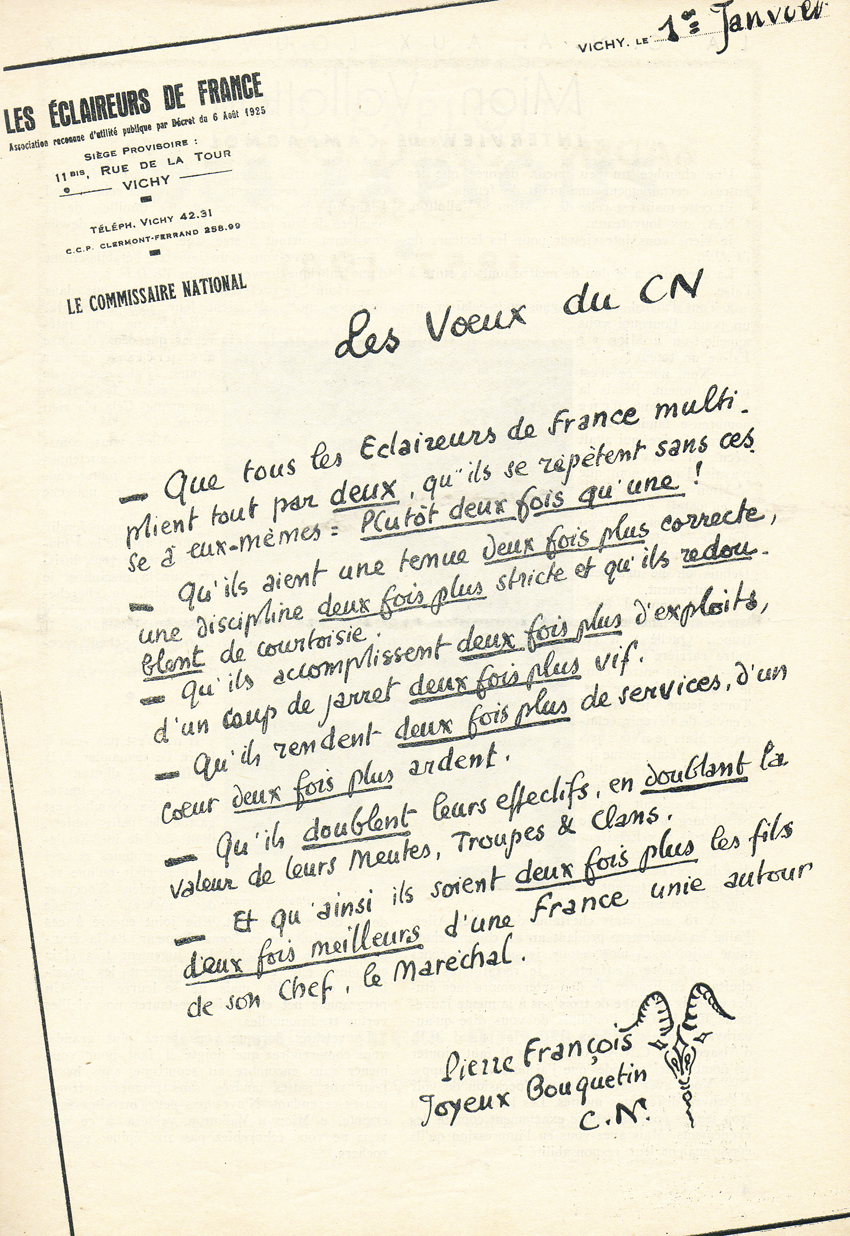 VICHY, LE 1er Janvier
LES ÉCLAIREURS DE FRANCE
Association reconnue d'utilité publique par Décret du 6 Août 1925
SIÈGE PROVISOIRE :
11 BIS, RUE DE LA TOUR
VICHY
TÉLÉPH. VICHY 42.31
C.C.P. CLERMONT-FERRAND 258.99
LE COMMISSAIRE NATIONAL
Les Voeux du CN
— Que tous les Eclaireurs de France multi-
plient tout par deux, qu'ils se répètent sans ces-
se à eux-mêmes : Plutôt deux fois qu'une !
— Qu'ils aient une tenue deux fois plus correcte,
une discipline deux fois plus stricte et qu'ils redou-
blent de courtoisie.
— Qu'ils accomplissent deux fois plus d'exploits,
d'un coup de jarret deux fois plus vif.
— Qu'ils rendent deux fois plus de services, d'un
coeur deux fois plus ardent.
— Qu'ils doublent leurs effectifs, en doublant la
valeur de leurs Meutes, Troupes & Clans.
— Et qu'ainsi ils soient deux fois plus les fils
deux fois meilleurs d'une France unie autour
de son Chef, le Maréchal.
Pierre François
Joyeux Bouquetin
C.N.